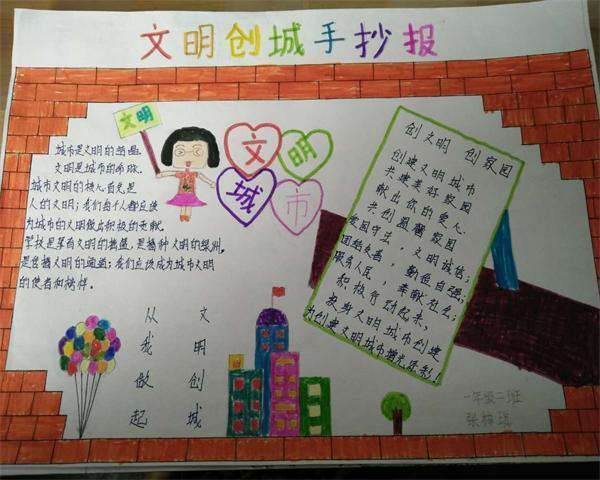 文明创城手抄报
文明
文明
城市
城市是文明的
文明是城市的
城市文明的核心首先是
人的文明；我们每个人都应该
为城市的文明做出积极的贡献。
学校是 文明的 ，是播种文明的绿洲，
是传播文明的通道；我们应该成为城市文明
的使者和榜样。
从我做起
文明创城
创文明 创家园
创建文明城市
共建美好家园
献出你的爱心
共创温馨家园
爱国守法，文明诚信；
团结友善，勤俭自强；
服务人民，奉献社会；
积极行动起来，
投身文明城市创建
为创建文明城市增光添彩！
一年级二班
张